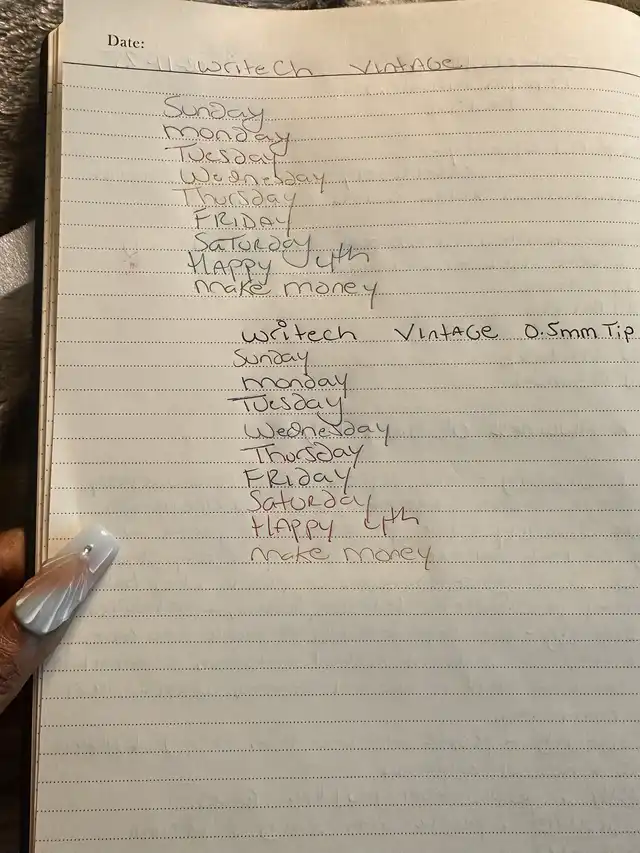 Date:
writech Vintage
Sunday
monday
Tuesday
Wednesday
Thursday
FRIDAY
Saturday
HAPPY 4th
make money
writech Vintage 0.5mm Tip
Sunday
monday
Tuesday
Wednesday
Thursday
FRiday
Saturday
HAppy 4th
make money